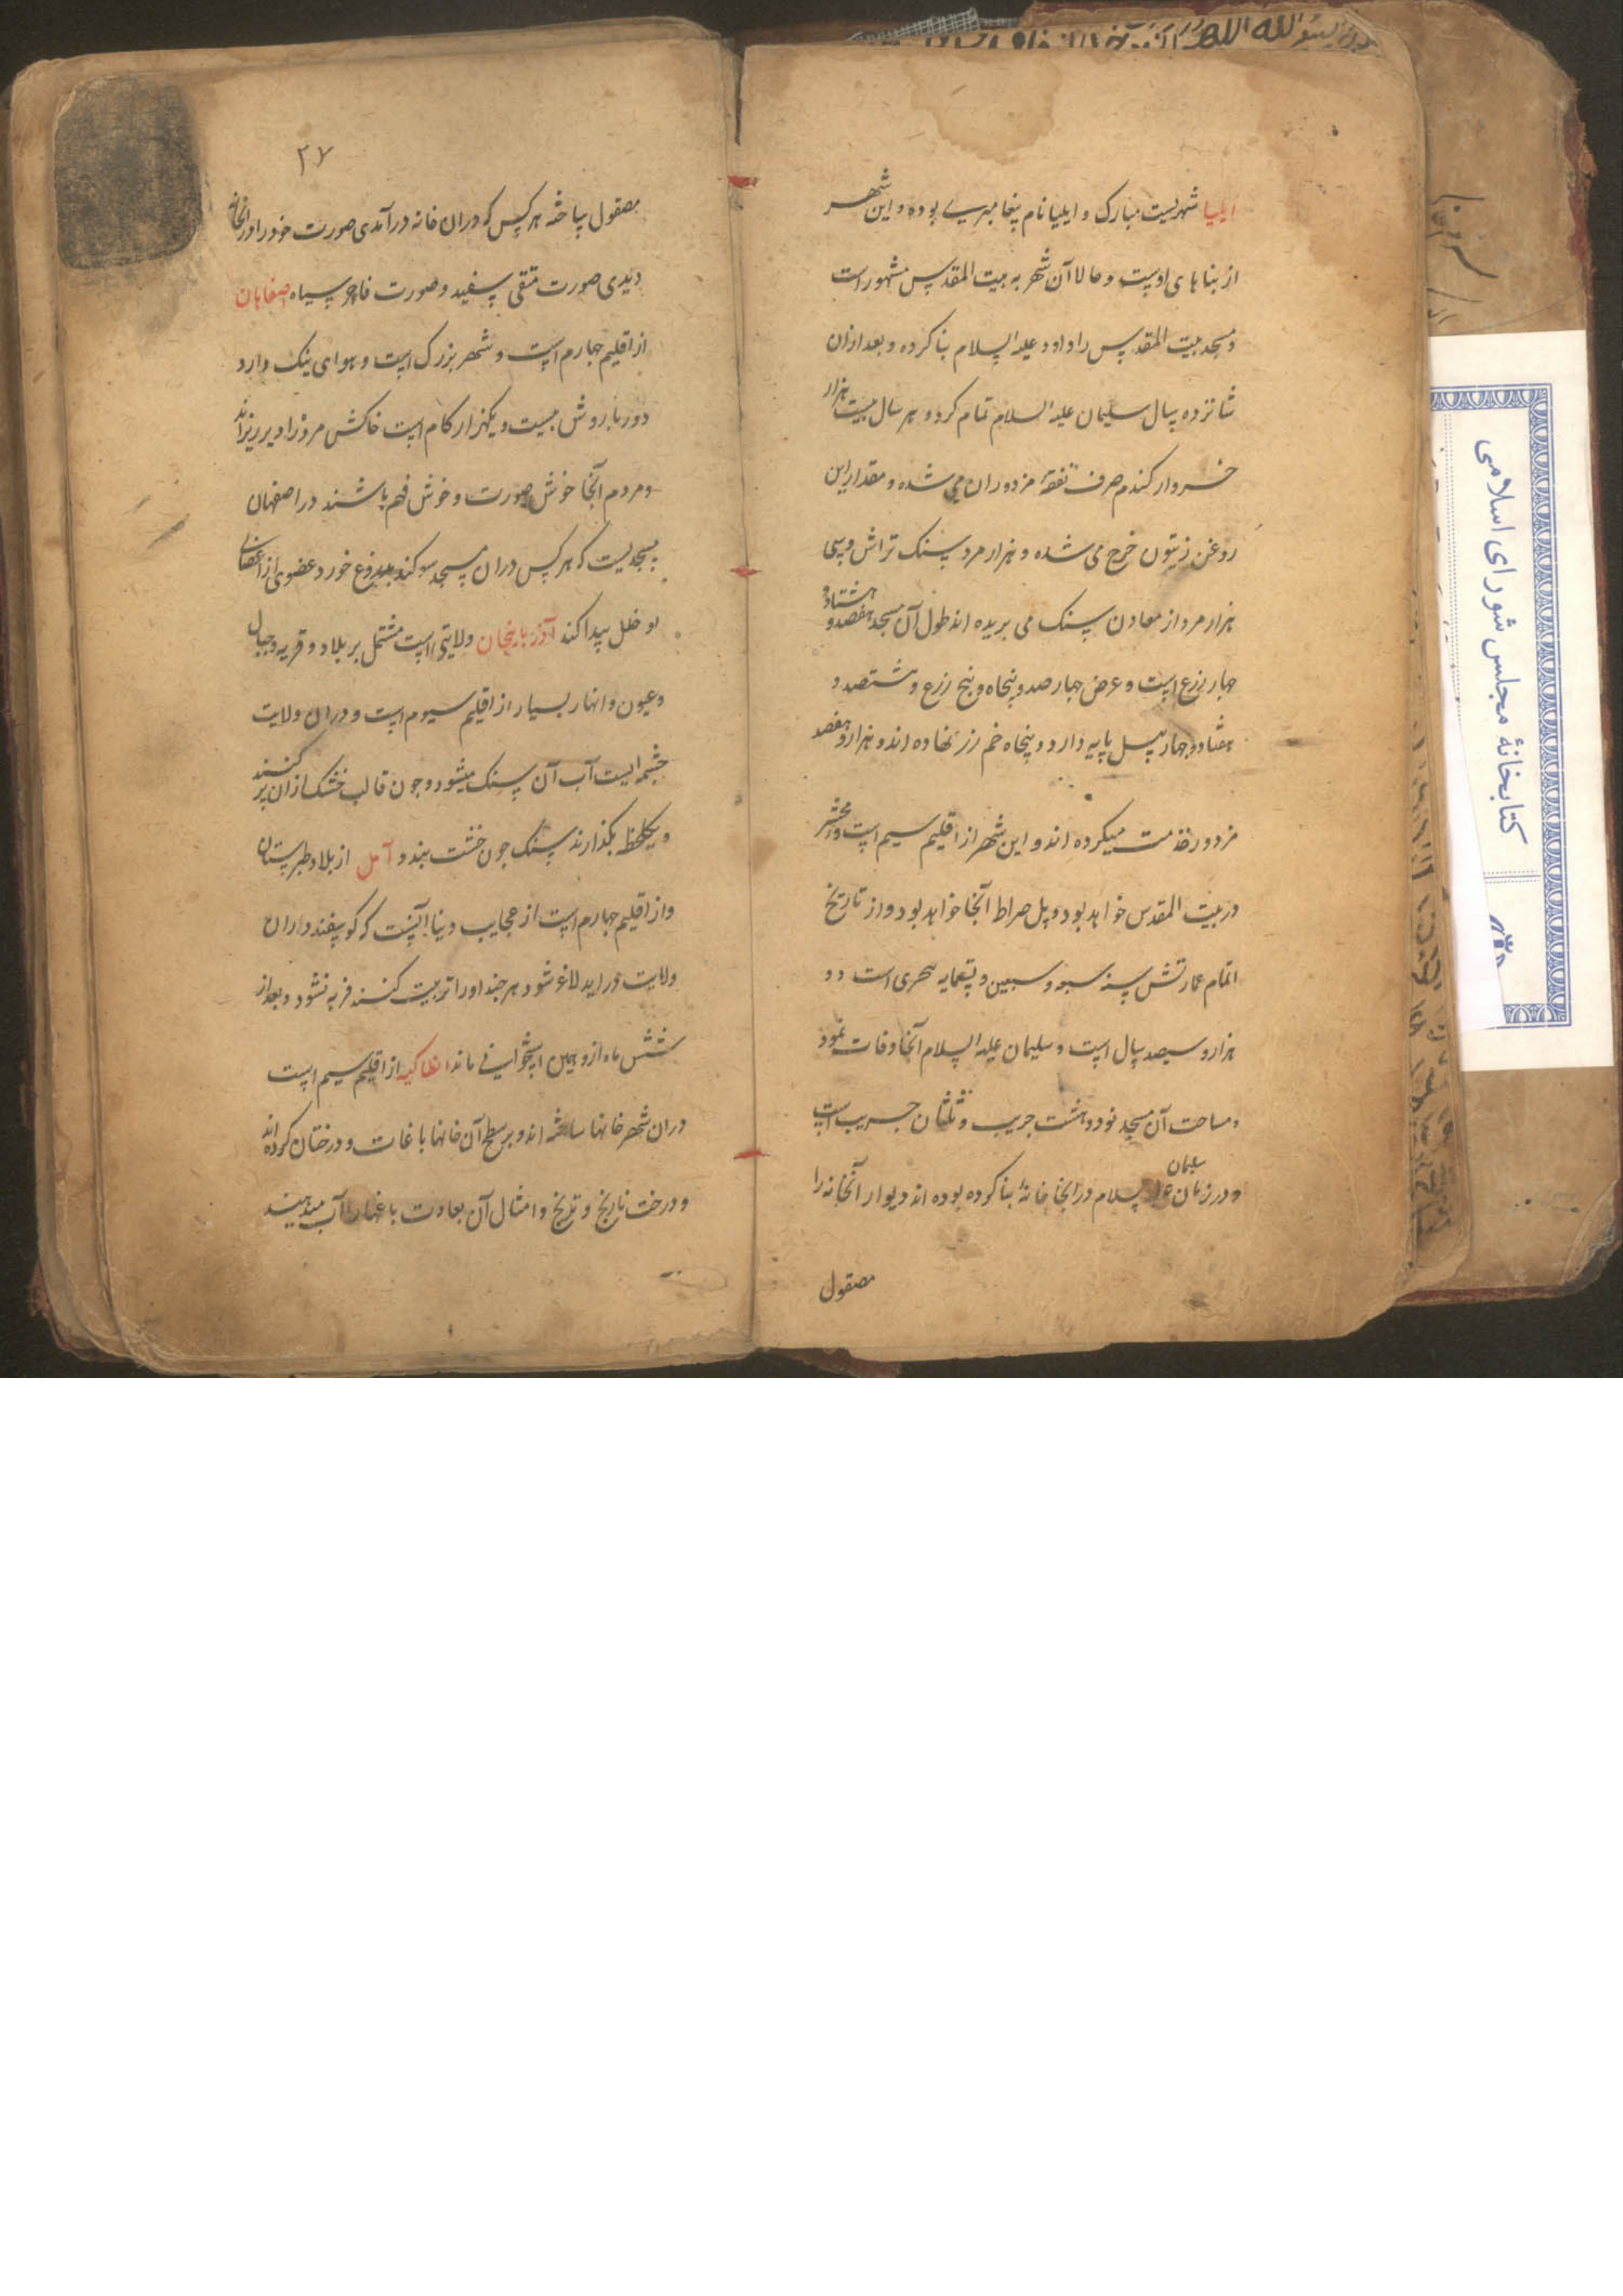 ایلیا شهریست مبارک و ایلیا نام پیغامبری بوده و این شهر
از بناهای اوست و حالا آن شهر به بیت المقدس مشهور است
و مسجد بیت المقدس را داود علیه السلام بنا کرده و بعد ازان
شانزده سال سلیمان علیه السلام تمام کرد و هر سال بیست هزار
خروار کندم صرف نفقهٔ مزدوران می شده و مقدار این
روغن زیتون خرج می شده و هزار مرد سنک تراش و سی
هزار مرد از معادن سنک می بریده اند طول آن مسجد هفصد و هشتاد و
چهار زرع است و عرض چهار صد و پنجاه و پنج زرع و ششصد و
هشتاد و چهار پیل پایه دارد و پنجاه خم زر نهاده اند و هزار و هفصد
مزدور خدمت میکرده اند و این شهر از اقلیم سیم است و محشر
در بیت المقدس خواهد بود و پل صراط آنجا خواهد بود و از تاریخ
اتمام عمارتش سنه سبع و سبعین و تسعمایه هجری است دو
هزار و سیصد سال است و سلیمان علیه السلام آنجا وفات نمود
و مساحت آن مسجد نود و هشت جریب و ثلثان جریب است
و در زمان سلیمان علیه السلام در آنجا خانهٔ بنا کرده بوده اند دیوار آنخانه را
مصقول
۲۷
مصقول ساخته هر کس که دران خانه درآمدی صورت خود را در آنخانه
دیدی صورت متقی سفید و صورت فاجر سیاه اصفاهان
از اقلیم چهارم است و شهر بزرک است و هوای نیک دارد
دور باروش بیست و یکهزار کام است خاکش مرده را دیر ریزاند
و مردم آنجا خوش صورت و خوش فهم باشند در اصفهان
مسجدیست که هر کس دران مسجد سوکند بدروغ خورد عضوی از اعضای
او خلل پیدا کند آذربایجان ولایتی است مشتمل بر بلاد و قریه و جبال
و عیون و انهار بسیار از اقلیم سیوم است و دران ولایت
چشمه ایست آب آن سنک میشود و چون قالب خشک ازان پر کنند
و یکلحظه بکذارند سنک چون خشت ببندد آمل از بلاد طبرستان
و از اقلیم چهارم است از عجایب دنیا آنست که کوسفند دران
ولایت در آید لاغر شود هر چند او را تربیت کنند فربه نشود و بعد از
شش ماه ازو همین استخوانی ماند انطاکیه از اقلیم سیم است
دران شهر خانها ساخته اند و بر سطح آن خانها باغات و درختان کرده اند
و درخت نارنج و ترنج و امثال آن بعادت باغها را آب میدهند
کتابخانهٔ مجلس شورای اسلامی